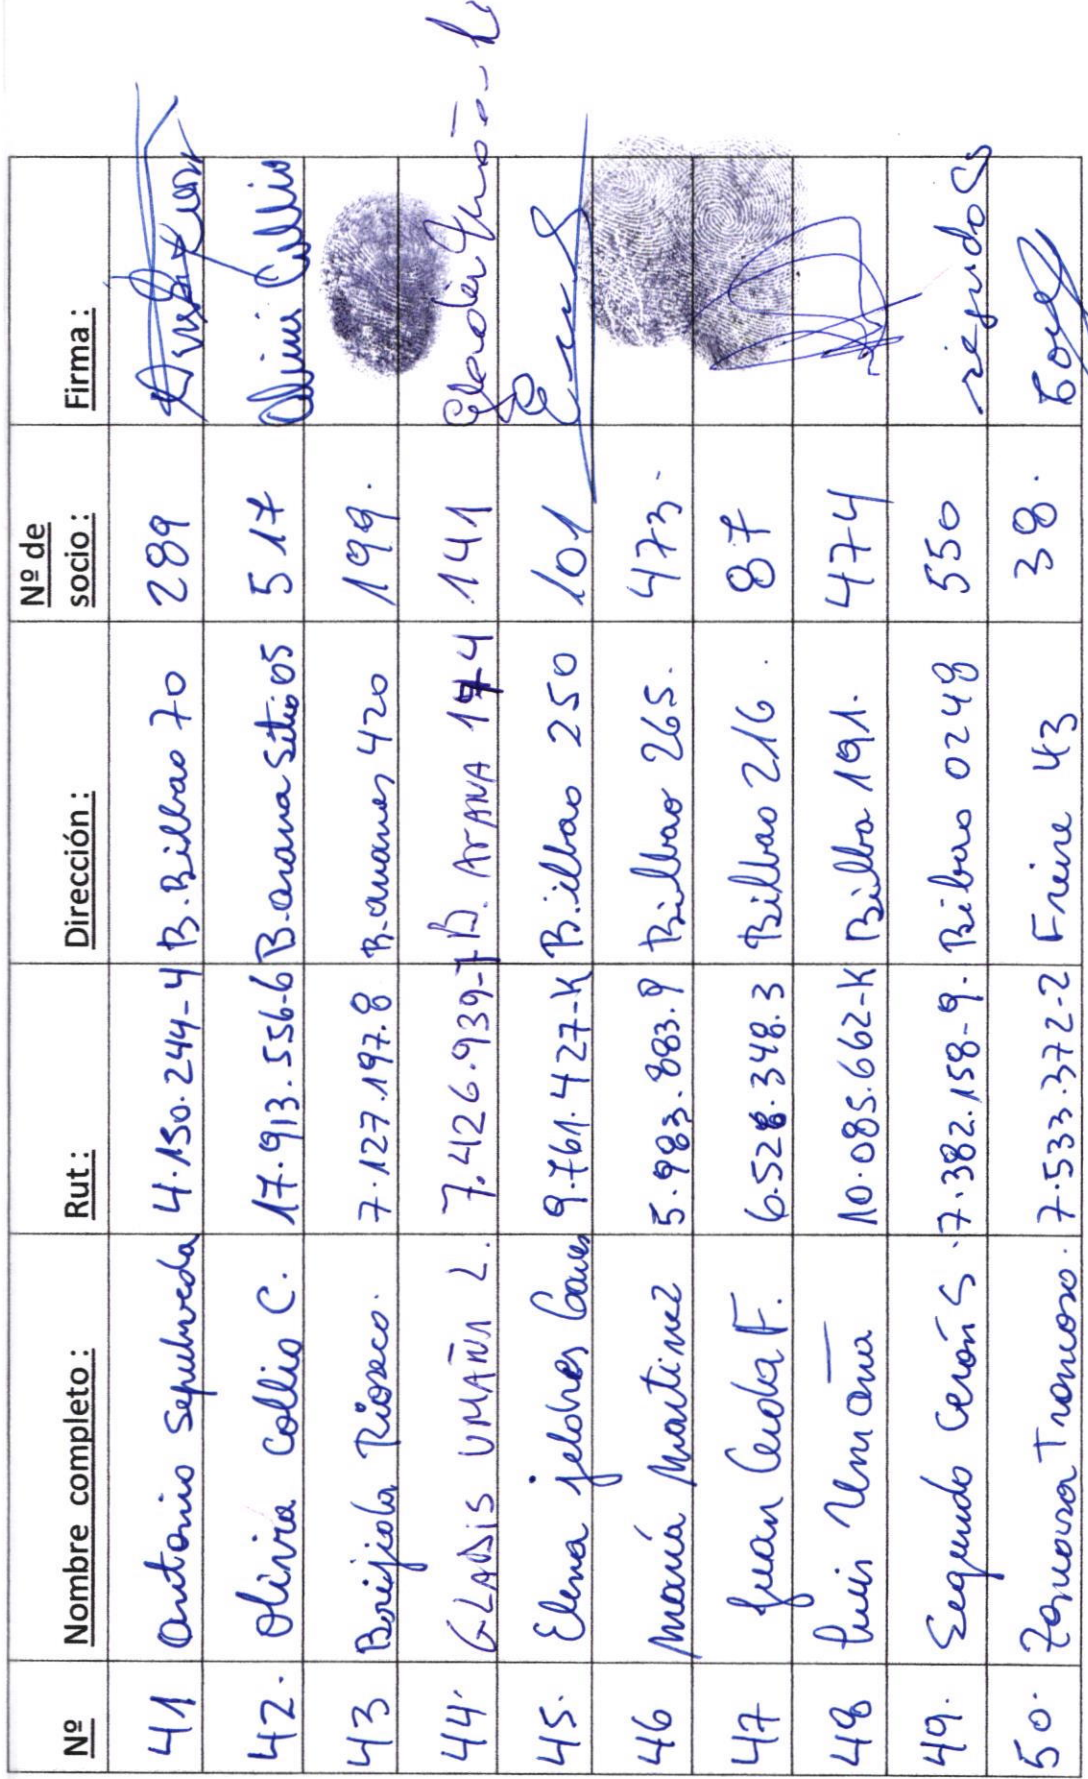 Nº Nombre completo : Rut : Dirección : Nº de socio : Firma :
41 Antonio Sepulveda 4.150.244-4 B. Bilbao 70 289
42. Olivia Collio C. 17.913.556-6 B-arana Sitio 05 517 Olivia Collio
43 Brijiola Rioseco. 7.127.197.8 B. 420 199.
44. GLADIS UMAÑA L. 7.426.939-7 B. ArANA 174 141
45. Elena jeldres 9.761.427-K B.ilbao 250 101
46 María Martinez 5.983.883.9 Bilbao 265. 473-
47 Juan Cerda F. 6.528.348.3 Bilbao 216. 87
48 Luis Umaña 10.085.662-K Bilba 191. 474
49. Segundo Cerón S. 7.382.158-9. Bilbao 0248 550 segundo CS
50. Troncoso. 7.533.372-2 Freire 43 38.